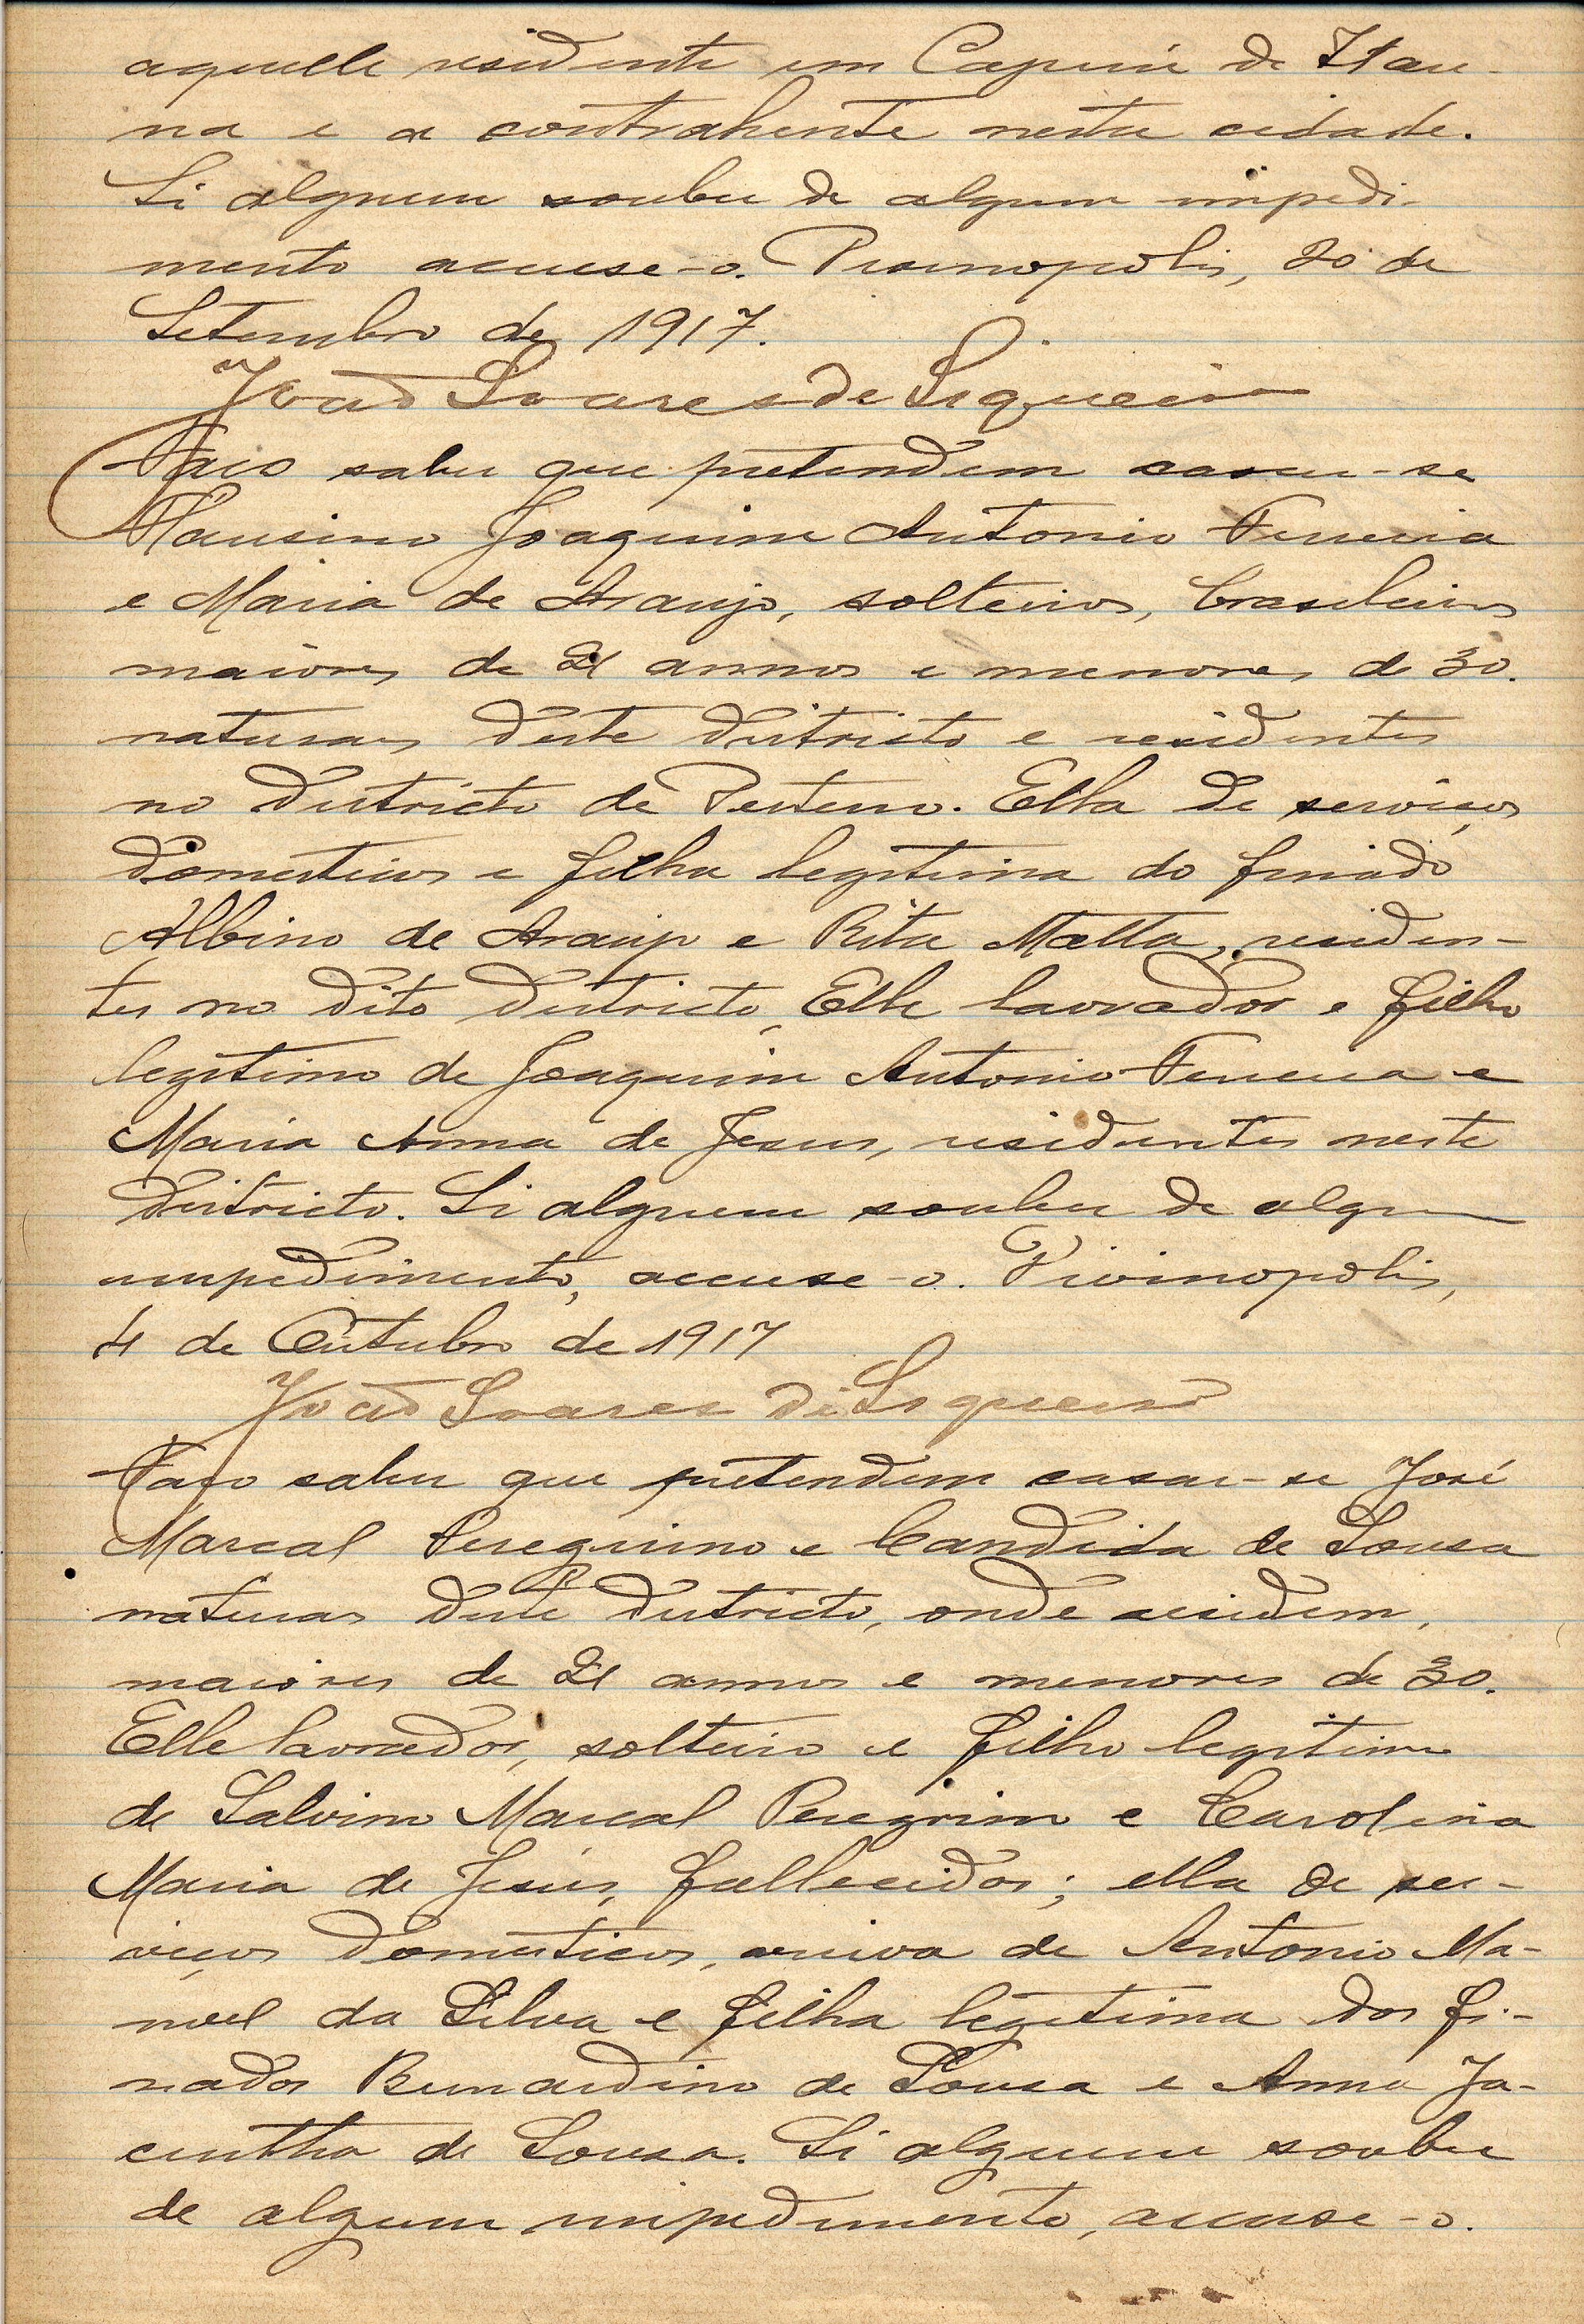 aquelle residente em Cajurú de Itau-
na e a contrahente nesta cidade.
Si alguem souber de algum impedi-
mento accuse-o. Divinopolis, 20 de
Setembro de 1917.
João Soares de Siqueira
Faço saber que pretendem casar-se
Flausino Joaquim Antonio Ferreira
e Maria de Araujo, solteiros, brasileiros
maiores de 21 annos e menores de 30.
naturaes deste districto e residentes
no districto de Ella de serviços
domesticos e filha legitima do finado
Albino de Araujo e Rita Matta, residen-
tes no dito districto, Elle lavrador e filho
legitimo de Joaquim Antonio Ferreira e
Maria Anna de Jesus, residentes neste
districto. Si alguem souber de algum
impedimento, accuse-o. Divinopolis,
4 de Outubro de 1917
João Soares de Siqueira
Faço saber que pretendem casar-se José
Marcal Peregrino e Candida de Sousa
naturaes deste districto, onde residem,
maiores de 21 annos e menores de 30.
Elle lavrador, solteiro e filho legitimo
de Salvino Marcal Peregrino e Carolina
Maria de Jesús, fallecidos; ella de ser-
viços domesticos, viuva de Antonio Ma-
noel da Silva e filha legitima dos fi-
nados Bernardino de Sousa e Anna Ja-
cintha de Sousa. Si alguem souber
de algum impedimento, accuse-o.